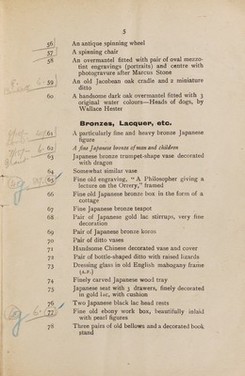 5
56 An antique spinning wheel
57 A spinning chair
58 An overmantel fitted with pair of oval mezzo-
tint engravings (portraits) and centre with
photogravure after Marcus Stone
59 An old Jacobean oak cradle and 2 miniature
ditto
60 A handsome dark oak overmantel fitted with 3
original water colours—Heads of dogs, by
Wallace Hester
Bronzes, Lacquer, etc.
61 A particularly fine and heavy bronze Japanese
figure
62 A fine Japanese bronze of man and children
63 Japanese bronze trumpet-shape vase decorated
with dragon
64 Somewhat similar vase
65 Fine old engraving, "A Philosopher giving a
lecture on the Orrery," framed
66 Fine old Japanese bronze box in the form of a
cottage
67 Fine Japanese bronze teapot
68 Pair of Japanese gold lac stirrups, very fine
decoration
69 Pair of Japanese bronze koros
70 Pair of ditto vases
71 Handsome Chinese decorated vase and cover
72 Pair of bottle-shaped ditto with raised lizards
73 Dressing glass in old English mahogany frame
(A.F.)
74 Finely carved Japanese wood tray
75 Japanese seat with 3 drawers, finely decorated
in gold lac, with cushion
76 Two Japanese black lac head rests
77 Fine old ebony work box, beautifully inlaid
with pearl figures
78 Three pairs of old bellows and a decorated book
stand